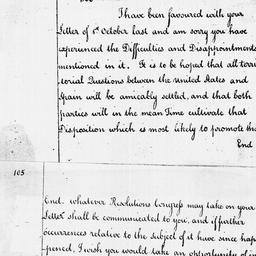 I have been favoured with your
Letter of 8th October last and am sorry you have
experienced the Difficulties and Disappointments
mentioned in it. It is to be hoped that all terri
torial Questions between the United States and
Spain will be amicably settled, and that both
parties will in the mean Time cultivate that
Disposition which is most likely to promote that
End
105
End. whatever Resolutions Congress may take on your
Letter shall be communicated to you, and if further
occurrences relative to the subject of it have since hap
pened, I wish you would take an opportunity of